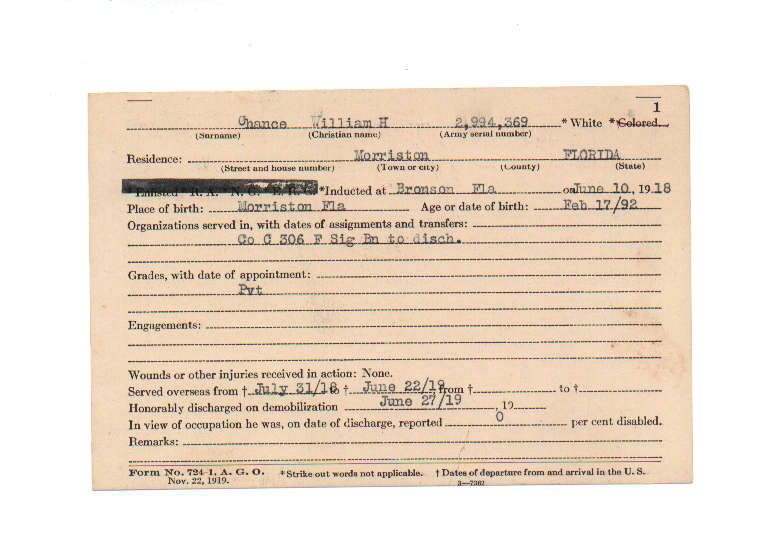 1
Chance William H 2,994,369 * White * Colored
(Surname) (Christian name) (Army serial number)
Residence: Morriston FLORIDA
(Street and house number) (Town or city) (County) (State)
* Enlisted * R. A. * N. G. * E. R. C. *Inducted at Bronson Fla on June 10, 1918
Place of birth: Morriston Fla Age or date of birth: Feb 17/92
Organizations served in, with dates of assignments and transfers:
Co C 306 F Sig Bn to disch.
Grades, with date of appointment:
Pvt
Engagements:
Wounds or other injuries received in action: None.
Served overseas from † July 31/18 to † June 22/19 from † to †
Honorably discharged on demobilization June 27/19, 19
In view of occupation he was, on date of discharge, reported 0 per cent disabled.
Remarks:
Form No. 724-1, A. G. O. *Strike out words not applicable. † Dates of departure from and arrival in the U. S.
Nov. 22, 1919. 3—7362